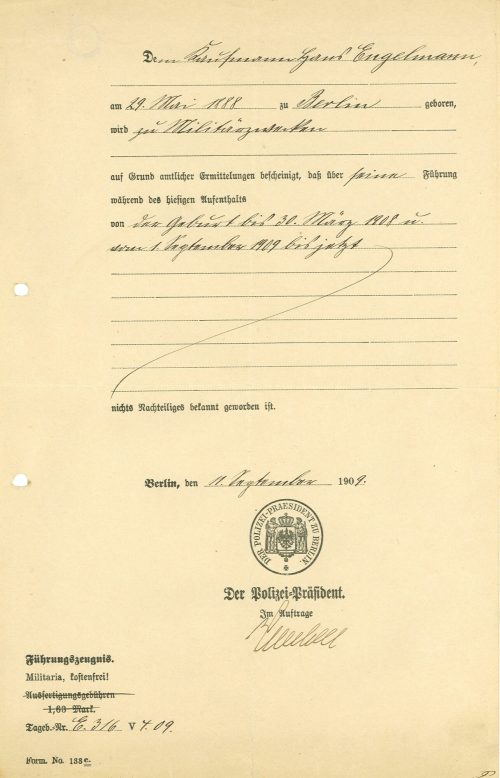 Dem Kaufmann Hans Engelmann,
am 29. Mai 1888 zu Berlin geboren,
wird zu Militärzwecken
auf Grund amtlicher Ermittelungen bescheinigt, daß über seine Führung
während des hiesigen Aufenthalts
von der Geburt bis 30. März 1908 u.
vom 1. September 1909 bis jetzt
nichts Nachteiliges bekannt geworden ist.
Berlin, den 11. September 1909.
DER POLIZEI-PRAESIDENT ZU BERLIN.
Der Polizei-Präsident.
Im Auftrage
Führungszeugnis.
Militaria, kostenfrei!
Ausfertigungsgebühren
1,63 Mark.
Tageb.-Nr. E. 316 V 4. 09.
Form. No. 138 e.